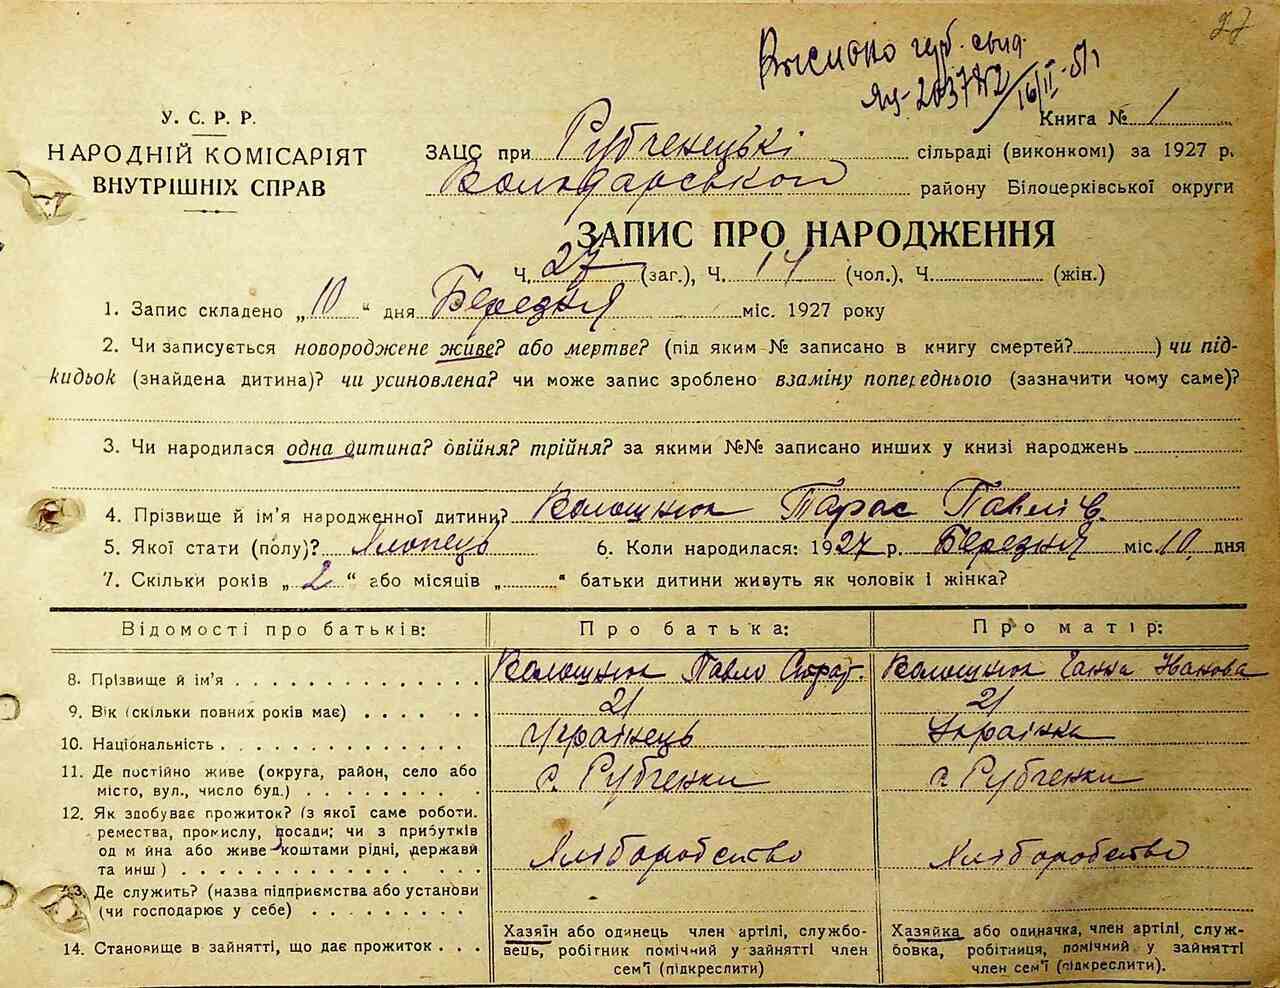 27
Выслано
ЯЦ-2037412 16/II-51
Книга № 1
У. С. Р. Р.
НАРОДНІЙ КОМІСАРІЯТ
ВНУТРІШНІХ СПРАВ
ЗАЦС при Рубченецькі сільраді (виконкомі) за 1927 р.
Володарського району Білоцерківської округи
ЗАПИС ПРО НАРОДЖЕННЯ
Ч. 27 (заг.), Ч. 14 (чол.), Ч. (жін.)
1. Запис складено „ 10 “ дня Березня міс. 1927 року
2. Чи записується новороджене живе? або мертве? (під яким № записано в книгу смертей? ) чи під-
кидьок (знайдена дитина)? чи усиновлена? чи може запис зроблено взаміну попереднього (зазначити чому саме)?
3. Чи народилася одна дитина? двійня? трійня? за якими №№ записано инших у книзі народжень
4. Прізвище й ім'я народженної дитини? Волощнюк Тарас Павлів.
5. Якої стати (полу)? Хлопець 6. Коли народилася: 1927 р. Березня міс. 10. дня
7. Скільки років „ 2 “ або місяців „ “ батьки дитини живуть як чоловік і жінка?
Відомості про батьків: Про батька: Про матір:
8. Прізвище й ім'я Волощнюк Павло Страт. Волощнюк Ганна Иванова
9. Вік (скільки повних років має) 21 21
10. Національність Українець Українка
11. Де постійно живе (округа, район, село або
місто, вул., число буд.) с. Рубченки с. Рубченки
12. Як здобуває прожиток? (з якої саме роботи.
ремества, промислу, посади; чи з прибутків
од майна або живе коштами рідні, держави
та инш) Хліборобство Хліборобство
13. Де служить? (назва підприємства або установи
(чи господарює у себе)
14. Становище в зайнятті, що дає прожиток
Хазяїн або одинець член артілі, службо-
вець, робігник помічний у зайнятті член
сем'ї (підкреслити)
Хазяйка або одиначка, член артілі, служ-
бовка, робітниця, помічний у зайнятті
член сем'ї (підкреслити).